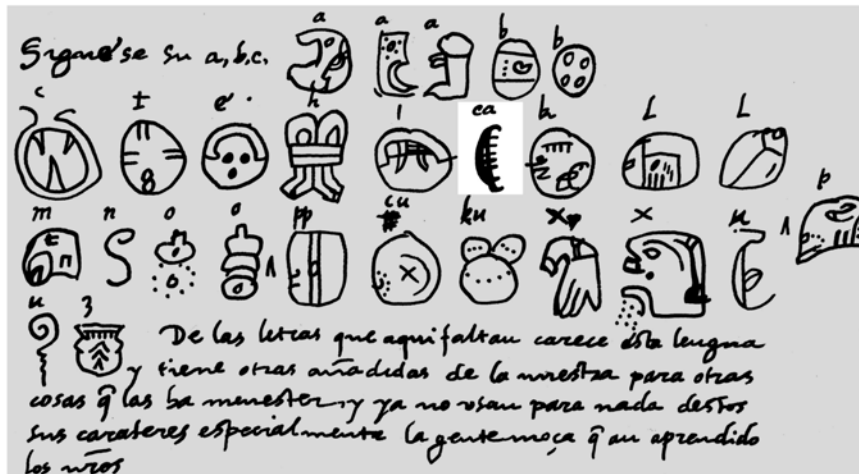 Siguese su a, b, c. a a a b b
c t e h i ca k l l
m n o o pp cu ku x x u p
u z De las letras que aqui faltan carece esta lengua
y tiene otras añadidas de la nuestra para otras
cosas q̃ las ha menester, y ya no usan para nada destos
sus carateres especialmente la gente moça q̃ an aprendido
los nr̃os